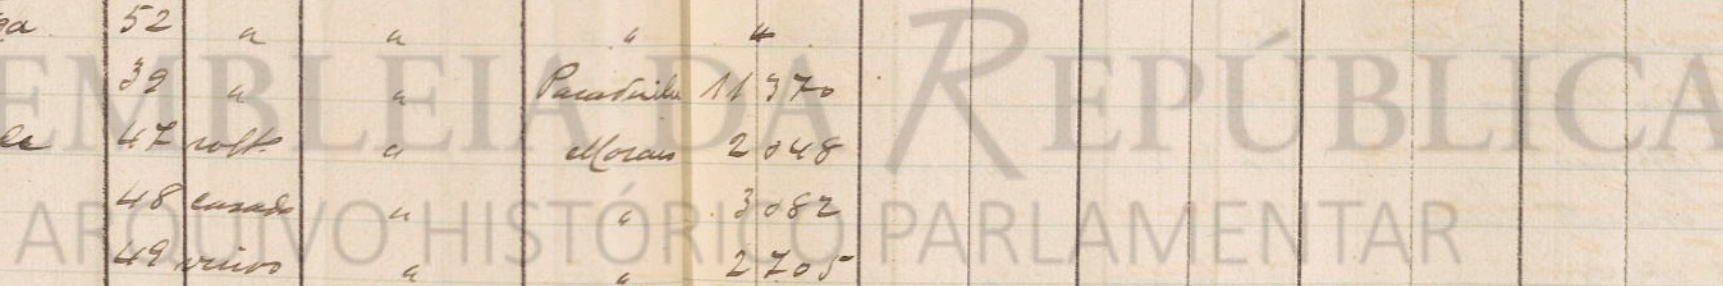 52 " " " "
39 " " Paradinha 11 370
47 solt. " Morais 2 048
48 casado " " 3 082
49 viuvo " " 2 705
ASSEMBLEIA DA REPÚBLICA
ARQUIVO HISTÓRICO PARLAMENTAR